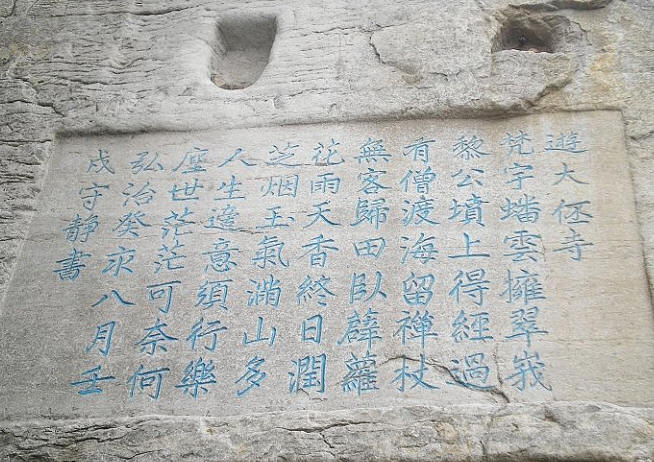 遊大伾寺
梵宇蟠雲擁翠峩
黎公墳上得經過
有僧渡海留禪杖
無客歸田臥薜蘿
花雨天香終日潤
芝烟玉氣滿山多
人生適意須行樂
塵世茫茫可奈何
弘治癸亥八月壬
戌守靜書